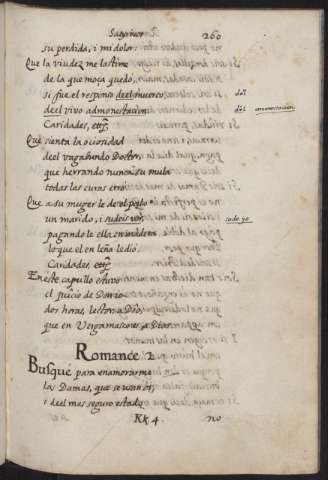 Satyricos 260
su perdida, i mi dolor:
Que la viudez me lastime
de la que moça quedó,
si fue el responso de el muerto,
de el vivo admonestacion. amonestacion
Caridades, etc.
Que sienta la ociosidad
de el vagabundo Doctor,
que herrando nunca su mula
todas las curas erró.
Que a su muger le
un marido, i sudo yo
pagandole ella en madera
lo que el en leña le dió.
Caridades, etc.
En este capullo estuvo
el juicio de
dos horas,
que en
Romance 2
Busque para enamorarme
las Damas, que se usan oi,
i de el mas seguro estado
Kk 4. no